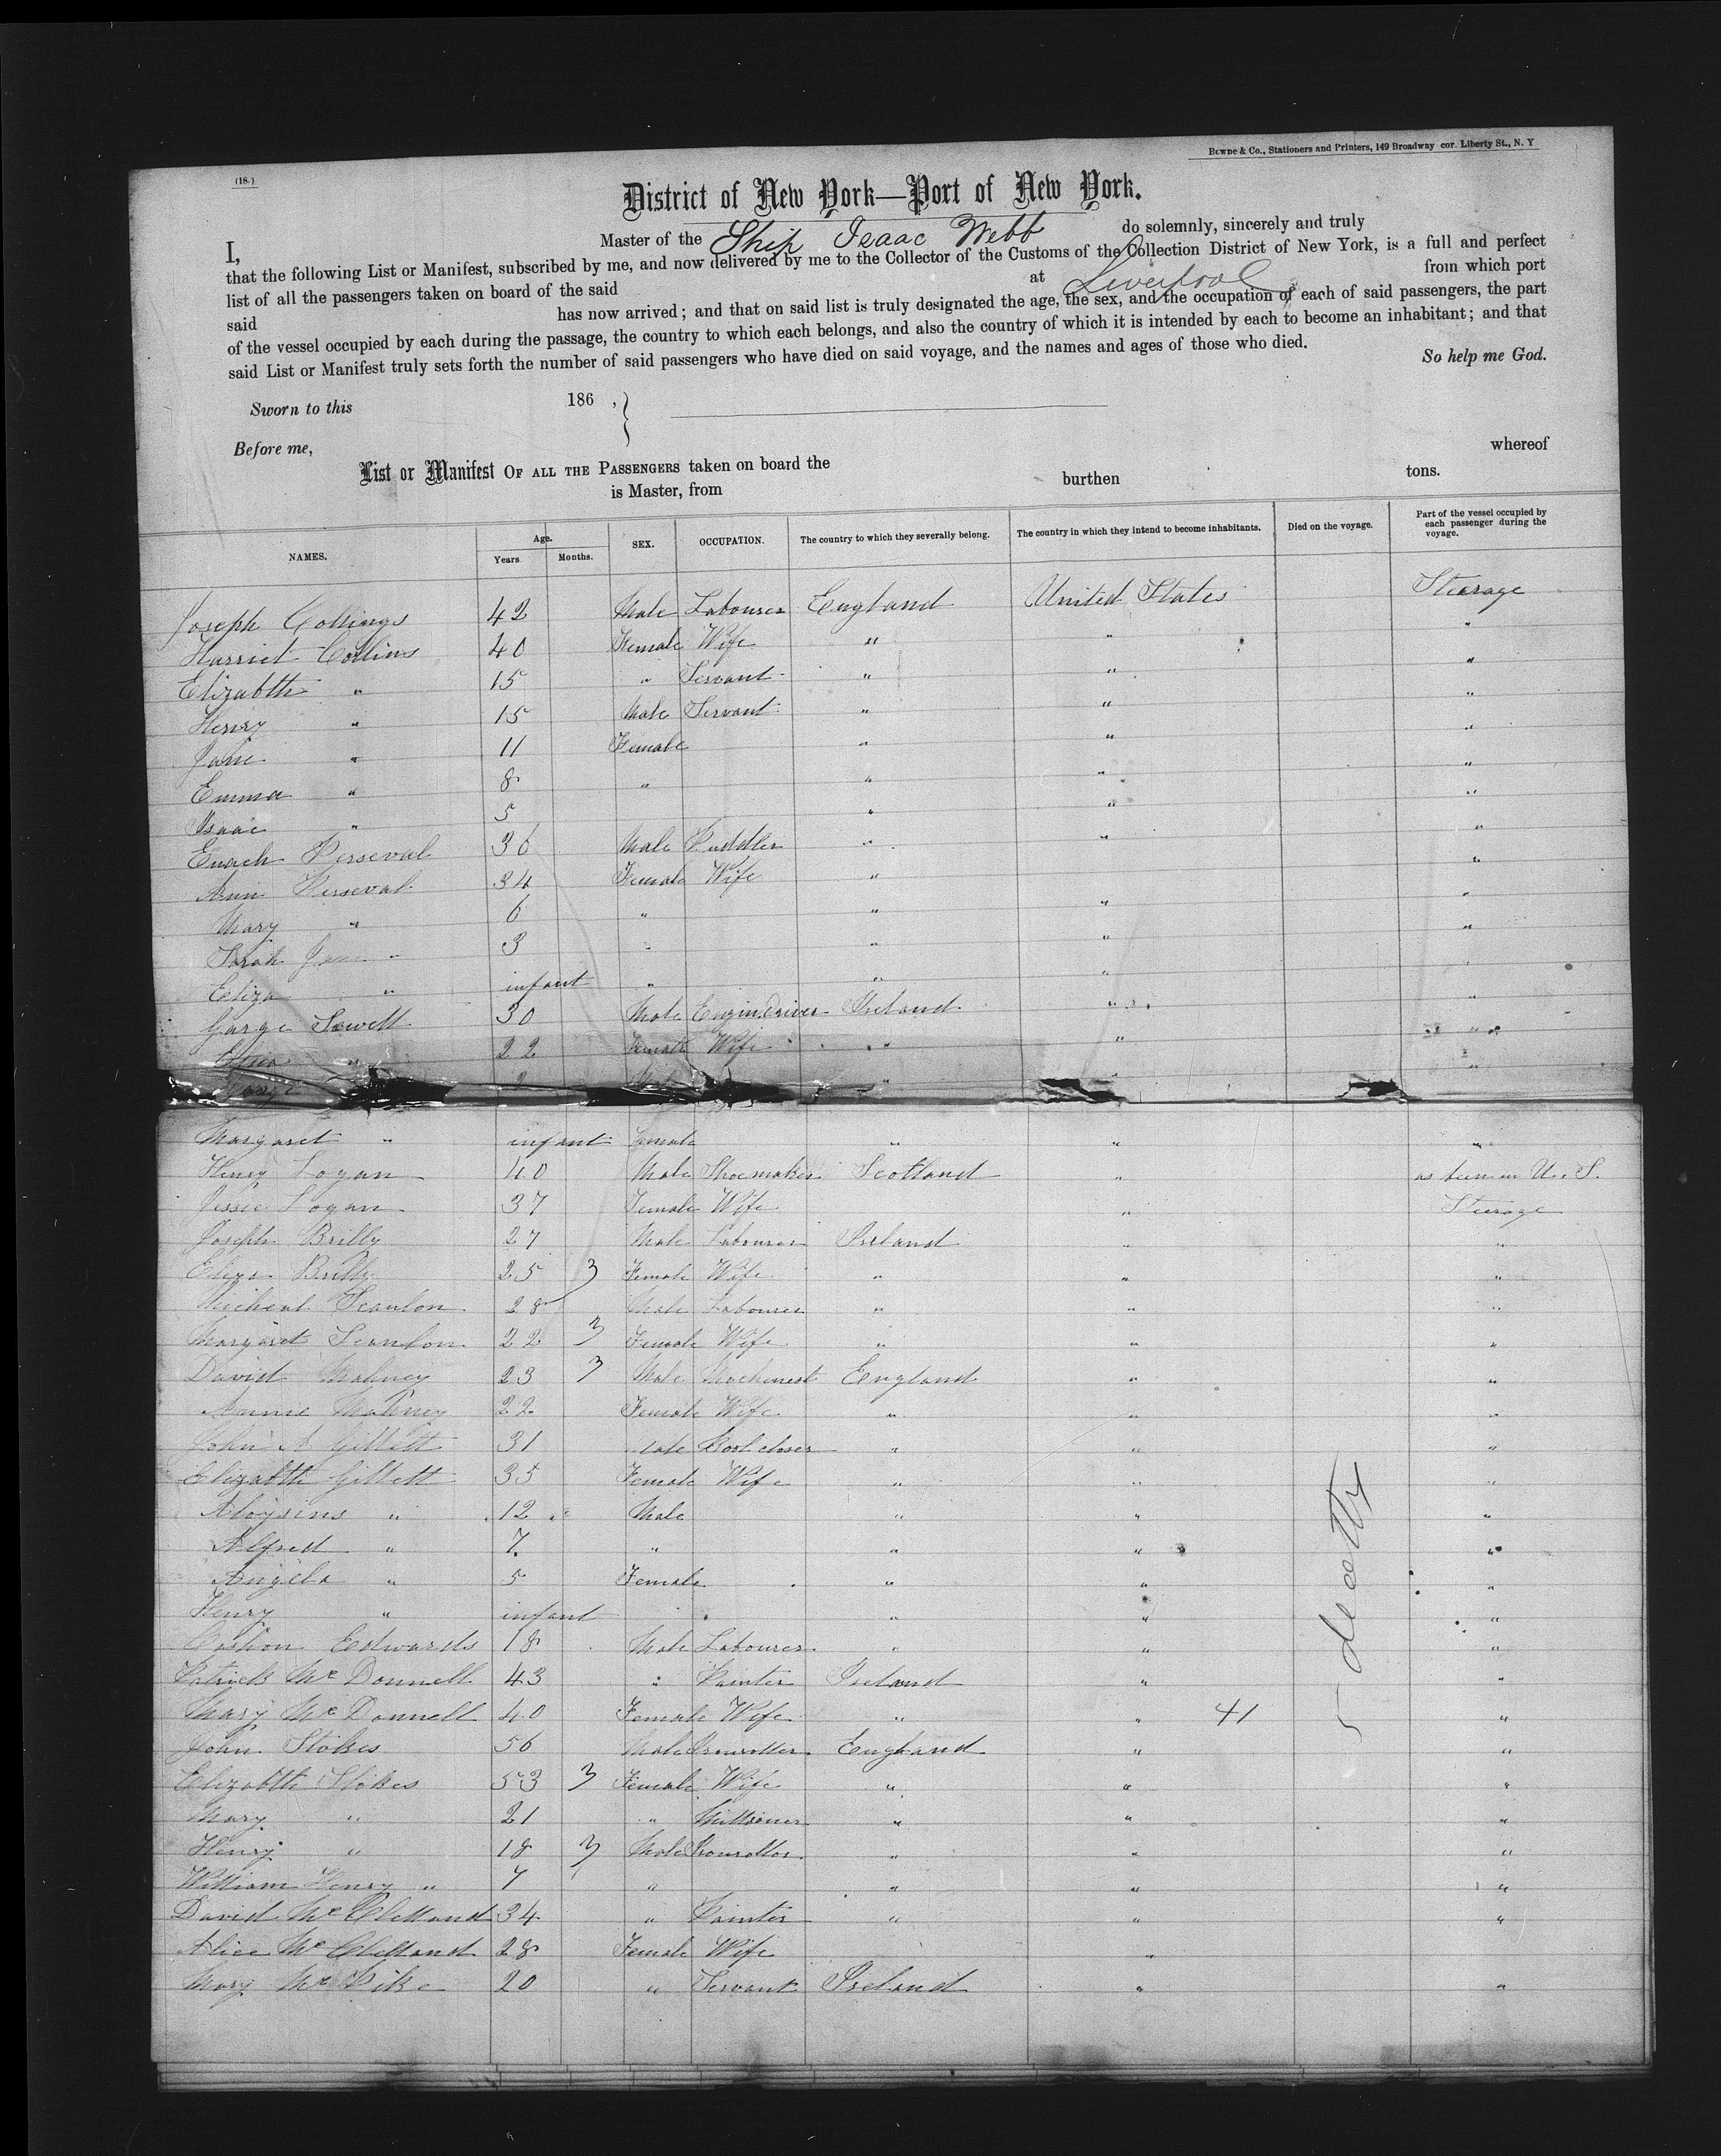 Bowne & Co., Stationers and Printers, 149 Broadway cor. Liberty St., N. Y
(18.)
District of New York—Port of New York.
I, Master of the Ship Isaac Webb do solemnly, sincerely and truly
that the following List or Manifest, subscribed by me, and now delivered by me to the Collector of the Customs of the Collection District of New York, is a full and perfect
list of all the passengers taken on board of the said at Liverpool from which port
said has now arrived; and that on said list is truly designated the age, the sex, and the occupation of each of said passengers, the part
of the vessel occupied by each during the passage, the country to which each belongs, and also the country of which it is intended by each to become an inhabitant; and that
said List or Manifest truly sets forth the number of said passengers who have died on said voyage, and the names and ages of those who died. So help me God.
Sworn to this 186 , }
Before me,
List or Manifest OF ALL THE PASSENGERS taken on board the whereof
is Master, from burthen tons.
NAMES. Age. Years Months. SEX. OCCUPATION. The country to which they severally belong. The country in which they intend to become inhabitants. Died on the voyage. Part of the vessel occupied by each passenger during the voyage.
Joseph Collings 42 Male Labourer England United States Steerage
Harriet Collins 40 Female Wife " " "
Elizabth " 15 " Servant " " "
Henry " 15 Male Servant " " "
Jane " 11 Female " " "
Emma " 8 " " " "
Isaac " 5 " " "
Enoch Perseval 36 Male Puddler " " "
Ann Perseval 34 Female Wife " " "
Mary " 6 " " " "
Sarah Jane " 3 " " " "
Eliza " infant " " " "
Garge Sewell 30 Male Engin Driver Ireland " "
" 22 Female Wife " " "
2 " " "
Margaret " infant Female " " "
Henry Logan 40 Male Shoemaker Scotland " as been in U. S.
Jessie Logan 37 Female Wife " Steerage
Joseph Brilly 27 Male Labourer Ireland " "
Eliza Brilly 25 3 Female Wife " " "
Micheal Scanlon 28 Male Labourer " " "
Margaret Scanlon 22 3 Female Wife " " "
David Mahney 23 3 Male Machenest England " "
Annie Mahney 22 Female Wife " " "
John A Gillett 31 Male Bootcloser " " "
Elizabth Gillett 35 Female Wife " " "
Aloysins " 12 " Male " " "
Alfred " 7 " " " "
Angela " 5 Female " " "
Henry " infant " " "
Edwards 18 Male Labourer " " "
Patrick McDonnell 43 " Painter Ireland " "
Mary McDonnell 40 Female Wife " " 41 "
John Stokes 56 Male Ironroller England " "
Elizabth Stokes 53 3 Female Wife " " "
Mary " 21 " Millioner " " "
Henry " 18 3 Male Ironrollor " " "
William Henry " 7 " " " "
David McClelland 34 " Painter " " "
Alice McClelland 28 Female Wife "
Mary McPike 20 " Servant Ireland " "